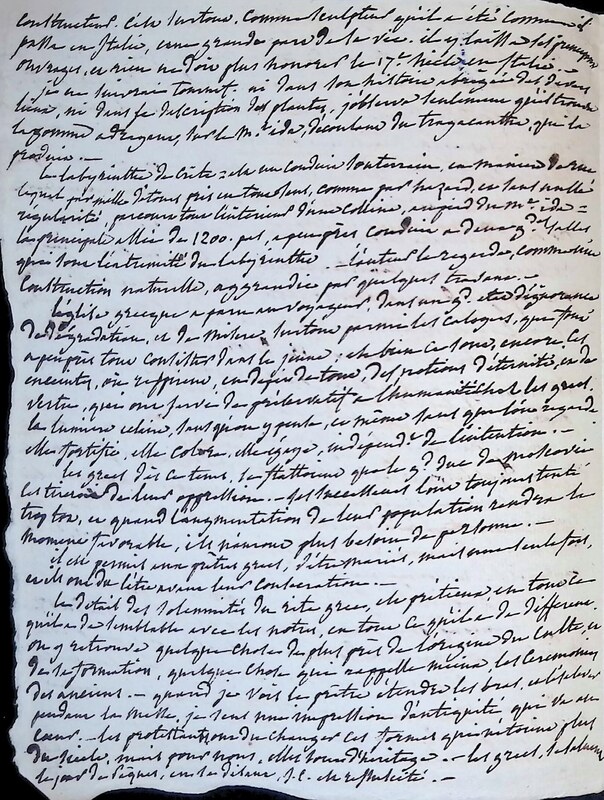 constructeur. C'est surtout comme sculpteur qu'il a été connu. il
passa en Italie, une grande part de sa vie. il y laissa ses principaux
ouvrages, et rien ne doit plus honorer le 17e siècle en Italie. —
je ne suivrai tournef. ni dans son histoire abrégée des divers
lieux, ni dans sa description des plantes, j'observe seulement qu'il trouva
la gomme adragant, sur le Mt ida, découlant du tragacantha, qui la
produit. —
le labyrinthe de Crète est un conduit souterrain, en manière de rue
lequel par mille détours pris en tous sens, comme par hazard, et sans nulle
régularité, parcourt tout l'intérieur d'une colline, au pied du Mt ida =
la principale allée de 1200. pas, à peu près conduit à deux gdes salles
qui sont l'extrémité du labyrinthe — l'auteur le regarde, comme une
construction naturelle, aggrandie par quelques travaux. —
l'église grecque a paru au voyageur, dans un gd état d'ignorance
de dégradation, et de misère surtout parmi les caloyers, que font
à peu près tout consister dans le jeûne; eh bien ce sont, encore, ces
enceintes, où respirent, en dépit de tout, des notions d'éternité, et de
vertu, qui ont servi de préservatif à l'humanité chez les grecs.
la lumière éclaire, sans qu'on y pense, et même sans que l'on regarde
elle fortifie, elle colore, elle égaye, indépendt de l'intention. —
les grecs dès ce tems, se flattoient que le gd duc de Moscovie
les tireroit de leur oppression. — ses successeurs l'ont toujours tenté
trop tôt, et quand l'augmentation de leur population rendra le
moment favorable, ils n'auront plus besoin de personne. —
il est permis aux prêtres grecs, d'être mariés, mais une seule fois,
et ils ont dû l'être avant leur consécration. —
le détail des solemnités du rite grec, est précieux en tout ce
qu'il a de semblable avec les notres, en tout ce qu'il a de différent.
on y retrouve quelque chose de plus près de l'origine du culte, et
de sa formation, quelque chose qui rappelle mieux les cérémonies
des anciens. — quand je vois le prêtre étendre les bras, et les élever
pendant la messe, je sens une impression d'antiquité, qui va au
coeur. — les protestants ont dû changer ces formes qui n'étoient plus
du siècle, mais pour nous, elles sont d'héritage. — les grecs, se saluent
le jour de Pâques, en se disant, J. C. est ressuscité. —